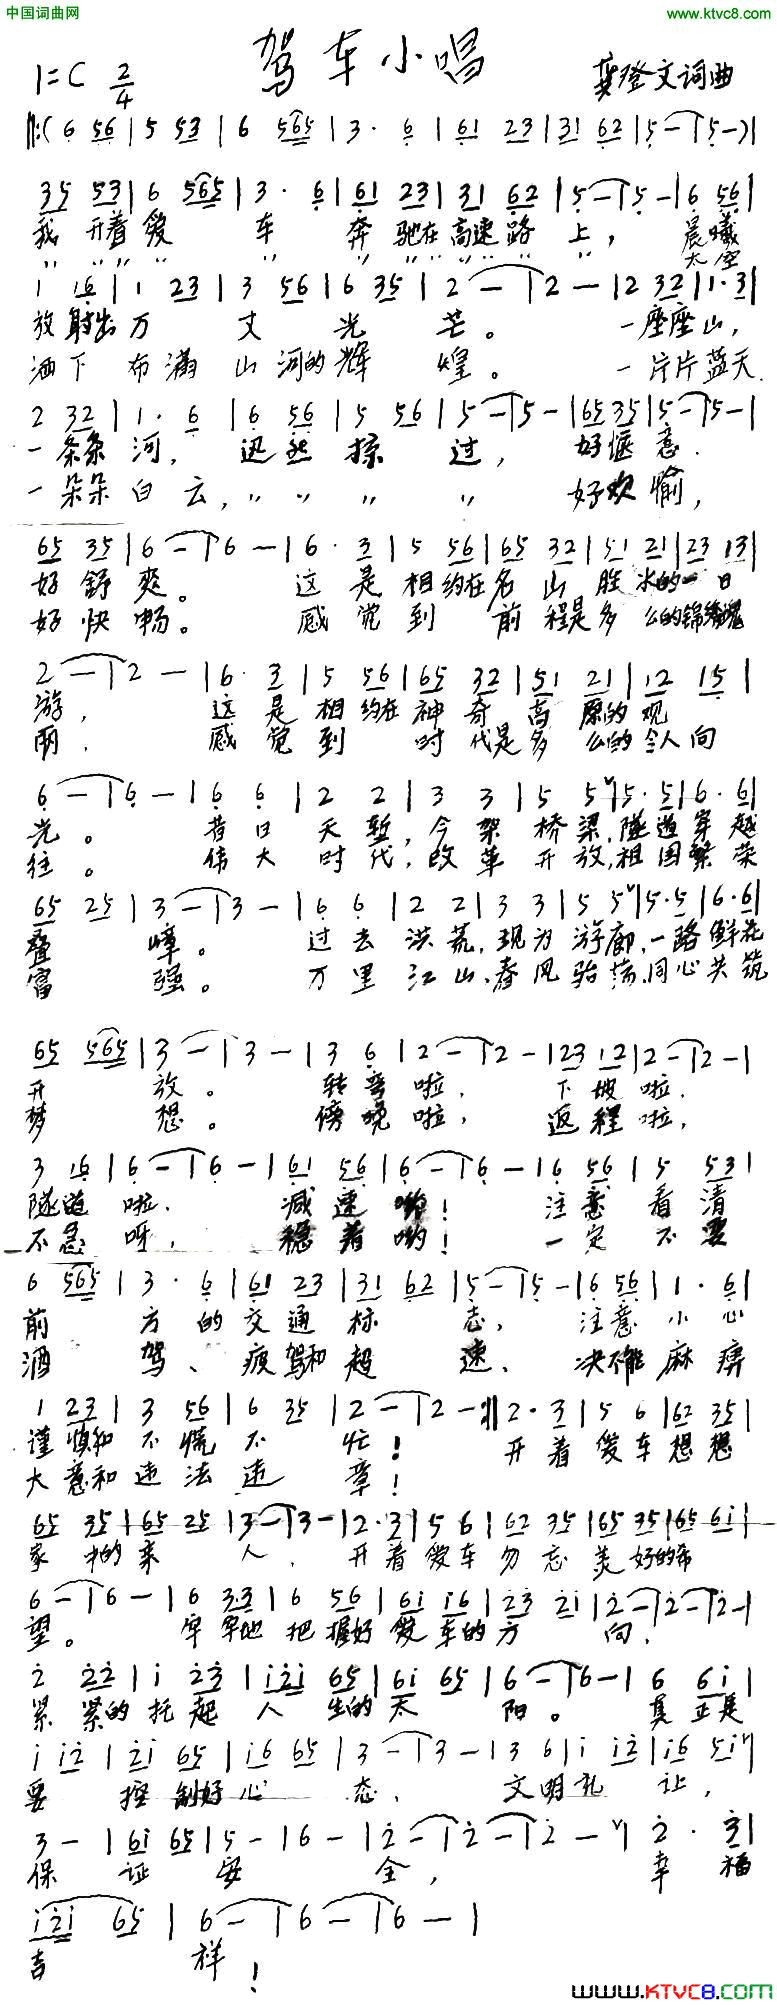 中国词曲网
www.ktvc8.com
驾车小唱
1=C 2/4
龚登文词曲
‖:( 6 56 | 5 53 | 6 565 | 3· 6 | 61 23 | 31 62 | 5 — | 5 — )|
35 53 | 6 565 | 3· 6 | 61 23 | 31 62 | 5 — | 5 — | 6 56 |
我 开着 爱 车 奔 驰在 高速 路 上, 晨曦
〃 〃 〃 〃 〃 〃 〃 〃 〃 〃 〃 太空
1 16 | 1 23 | 3 56 | 6 35 | 2 — | 2 — | 2 32 | 1· 3 |
放 射出 万 丈 光 芒。 一座座山,
洒下 布满 山 河的 辉 煌。 一片片蓝天
2 32 | 1· 6 | 6 56 | 5 56 | 5 — | 5 — | 65 35 | 5 — | 5 — |
一条条 河, 迅然 掠 过, 好惬意.
一朵朵 白云, 〃 〃 〃 〃 好欢愉,
65 35 | 6 — | 6 — | 6· 3 | 5 56 | 65 32 | 51 21 | 23 13 |
好 舒 爽。 这 是 相 约在 名 山 胜 水的 一 日
好 快 畅。 感 觉 到 前 程是 多 么的 锦绣
2 — | 2 — | 6· 3 | 5 56 | 65 32 | 51 21 | 12 15 |
游, 这 是 相 约在 神 奇 高 原的 观
丽, 感 觉 到 时 代是 多 么的 令人 向
6 — | 6 — | 6 6 | 2 2 | 3 3 | 5 5 | 5· 5 | 6· 6 |
光。 昔日 天堑, 今架 桥梁, 隧道 穿越
往。 伟大 时代, 改革 开放, 祖国 繁荣
65 25 | 3 — | 3 — | 6 6 | 2 2 | 3 3 | 5 5 | 5· 5 | 6· 6 |
叠 嶂。 过去 洪荒, 现为 游廊, 一路 鲜花
富 强。 万里 江山, 春风 骀荡, 同心 共筑
65 565 | 3 — | 3 — | 3 6 | 2 — | 2 — | 23 12 | 2 — | 2 — |
开 放。 转弯啦, 下坡啦,
梦 想。 傍晚啦, 返程啦,
3 16 | 6 — | 6 — | 61 56 | 6 — | 6 — | 6 56 | 5 53 |
隧道 啦, 减速 哟! 注意 看 清
不急 呀, 稳着 哟! 一定 不 要
6 565 | 3· 6 | 61 23 | 31 62 | 5 — | 5 — | 6 56 | 1· 6 |
前 方 的 交 通 标 志, 注意 小心
酒 驾、 疲驾和 超 速、 决不能 麻痹
1 23 | 3 56 | 6 35 | 2 — | 2 — :‖ 2· 3 | 5 6 | 62 35 |
谨 慎和 不慌 不 忙! 开着 爱车 想想
大 意和 违法 违 章!
65 35 | 65 25 | 3 — | 3 — | 2· 3 | 5 6 | 62 35 | 65 35 | 65 6i |
家 中的 亲 人, 开着 爱车 勿忘 美 好的希
6 — | 6 — | 6 33 | 6 56 | 6i i6 | 23 2i | 2 — | 2 — | 2 — |
望。 牢 牢地 把 握好 爱 车的 方 向,
2 22 | i 23 | i2i 65 | 6i 65 | 6 — | 6 — | 6 6i |
紧 紧的 托 起 人 生的 太 阳。 真 正是
i i2 | 2i 65 | i6 65 | 3 — | 3 — | 3 6 | i i2 | i6 5i |
要 控 制好 心 态, 文明 礼 让,
3 — | 6i 65 | 5 — | 6 — | 2 — | 2 — | 2 — | 2· 3 |
保 证 安 全, 幸 福
i2i 65 | 6 — | 6 — | 6 — |
吉 祥!
www.KTVC8.com